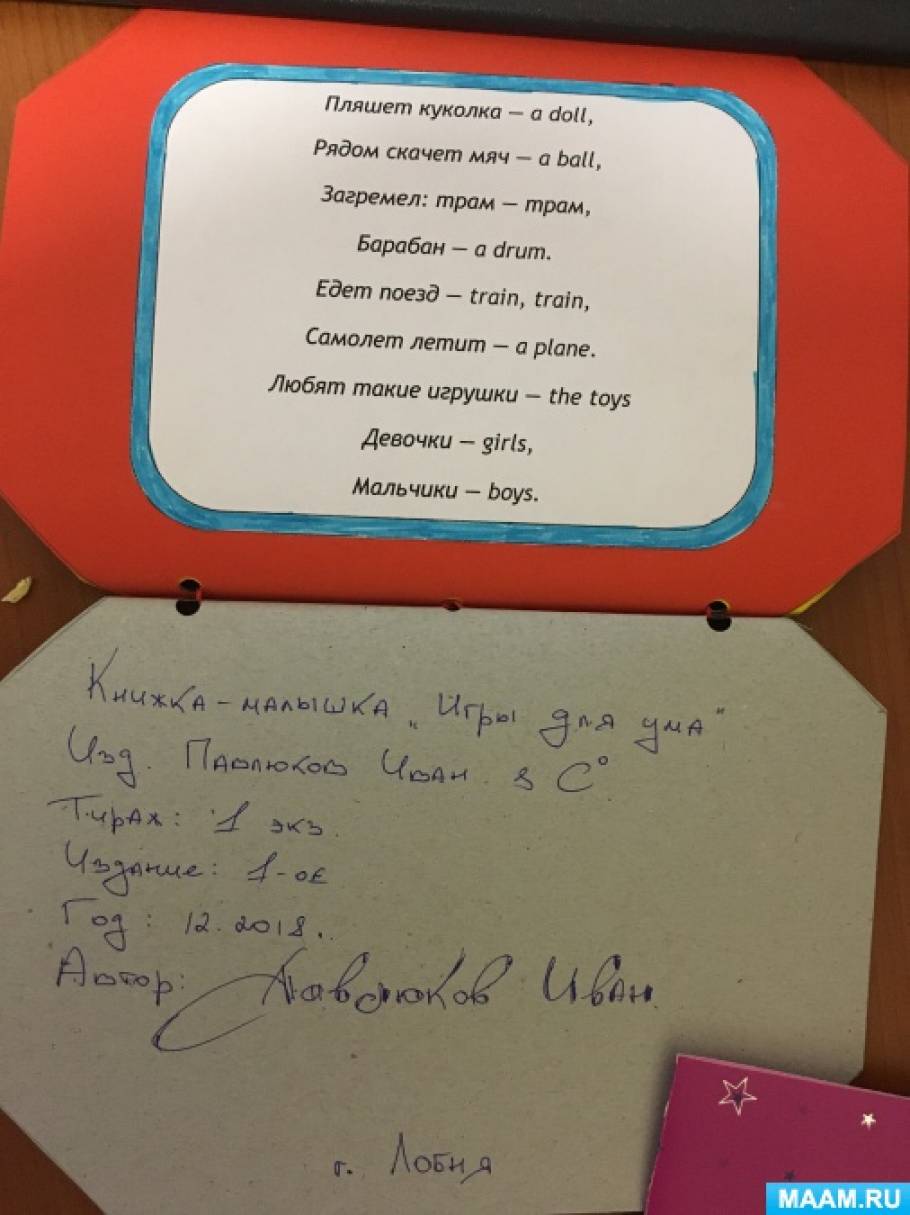 Пляшет куколка — a doll,
Рядом скачет мяч — a ball,
Загремел: трам — трам,
Барабан — a drum.
Едет поезд — train, train,
Самолет летит — a plane.
Любят такие игрушки — the toys
Девочки — girls,
Мальчики — boys.
Книжка-малышка „Игры для ума"
Изд. Павлюков Иван. 8 С°
Тираж: 1 экз.
Издание: 1-ое
Год: 12.2018.
Автор: Павлюков Иван
г. Лобня
MAAM.RU